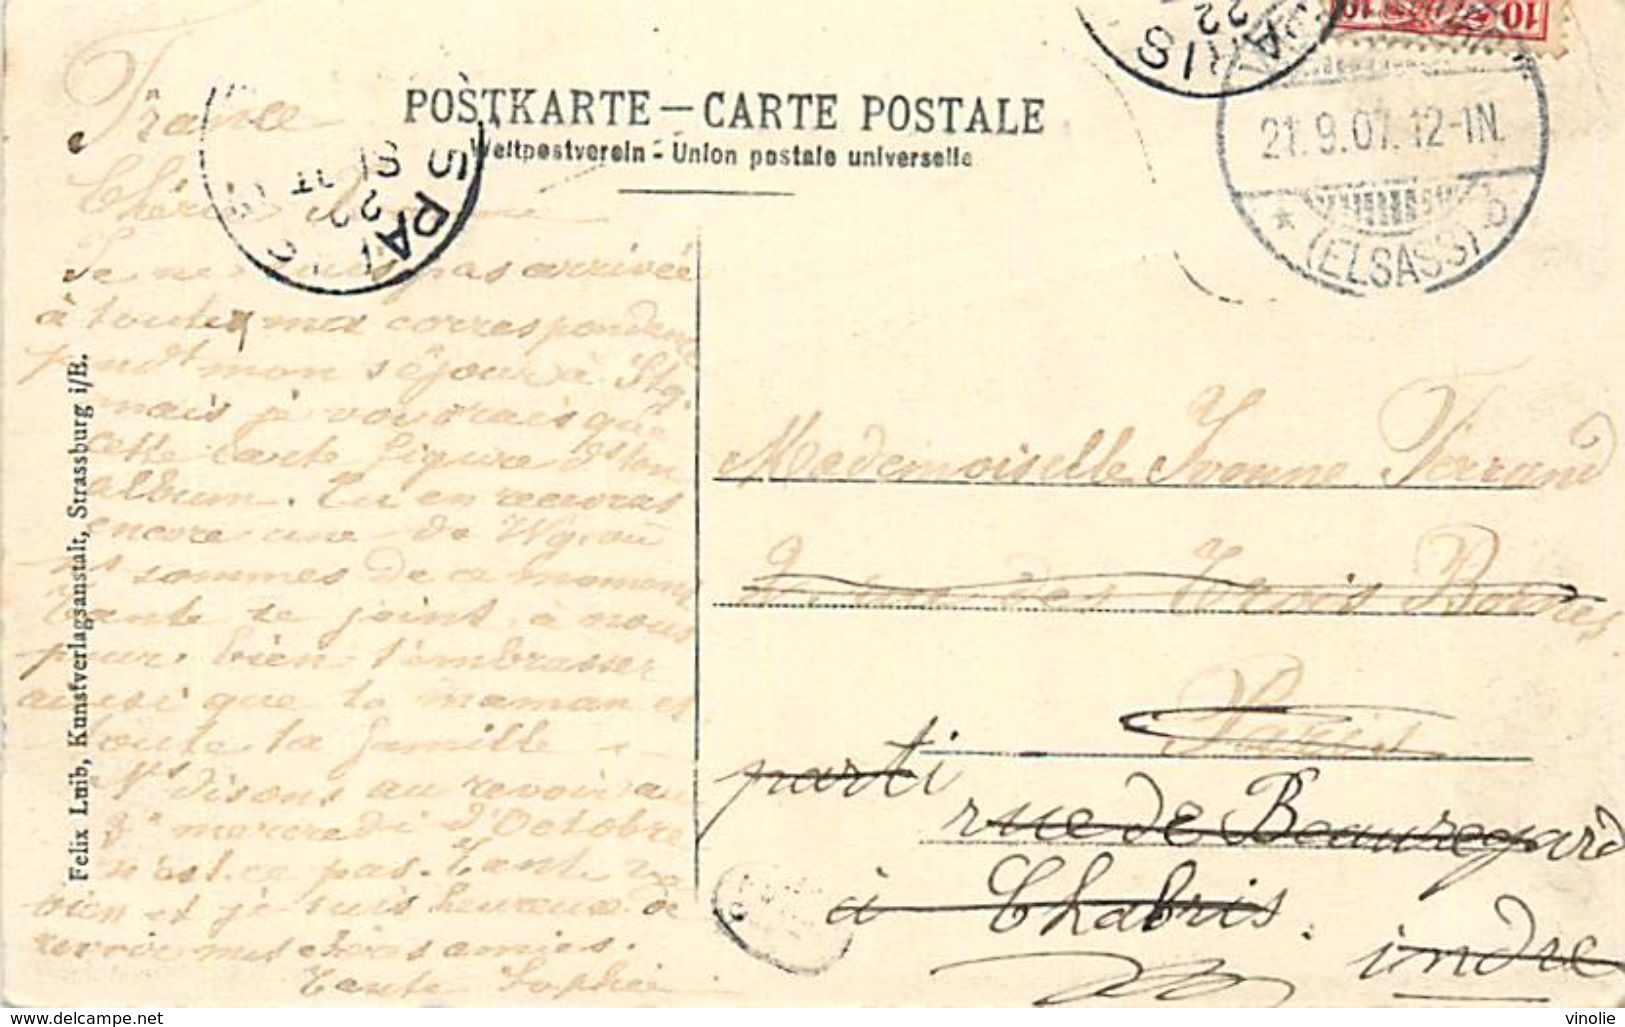 10 10
PARIS
22
21.9.07.12-1N.
* (ELSASS) b
POSTKARTE — CARTE POSTALE
Weltpostverein - Union postale universelle
PARIS
22
France
Chérie
Je ne suis pas arrivée
à toute ma correspondence
pendt mon séjour à Stg.
mais je voudrais que
cette carte figure ds ton
album. Tu en recevras
encore une de
ns sommes de ce moment
Tante se joint à nous
pour bien t'embrasser
ainsi que ta maman et
toute ta famille
Ns disons au revoir au
mercredi d'Octobre
n'est-ce pas. Tante va
bien et je suis heureuse de
revoir mes chères amies.
Tante Sophie
Mademoiselle Yvonne Ferrand
2 rue des Trois Bornes
Paris
parti
rue de Beauregard
à Chabris.
indre
Felix Luib, Kunstverlagsanstalt, Strassburg i/E.
www.delcampe.net
vinolie